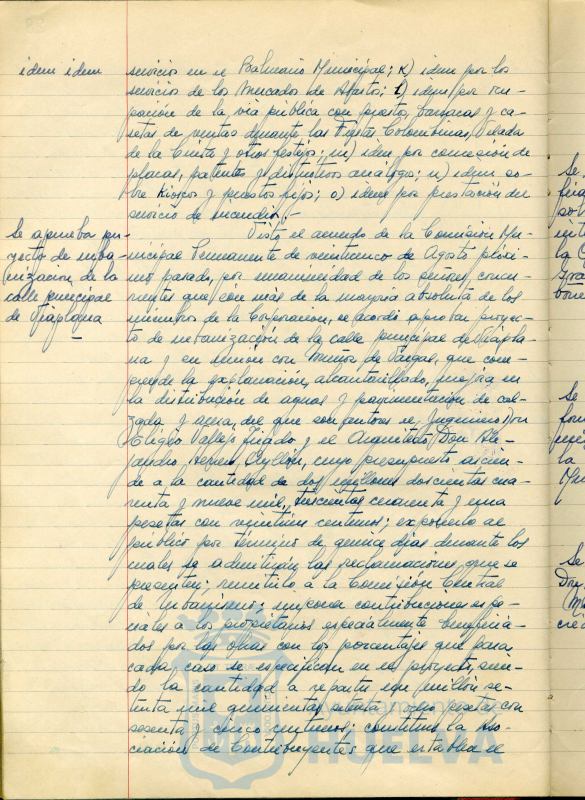 idem idem
servicio en el Balneario Municipal; k) idem por los
servicio de los Mercados de Abastos; l) idem por ocu-
pación de la via pública con puestos, barracas y ca-
setas de ventas durante las Fiestas Colombinas, Velada
de la Cinta y otros festejos; m) idem por concesión de
placas, patentes y distintivos análogos; n) idem so-
bre Kioscos y puestos fijos; o) idem por prestación del
servicio de incendio.-
Se aprueba pro-
yecto de urba-
nización de la
calle principal
de Viaplana
Visto el acuerdo de la Comisión Mu-
nicipal Permanente de veintiuno de Agosto próxi-
mo pasado, por unanimidad de los señores concu-
rrentes que son más de la mayoria absoluta de los
miembros de la Corporación, se acordó aprobar proyec-
to de urbanización de la calle principal de Viapla-
na y en unión con Muñoz de Vargas, que com-
prende la explanación, alcantarillado, mejora en
la distribución de aguas y pavimentación de cal-
zada y acera, del que son autores el Ingeniero Don
Eligio Vallejo y el Arquitecto Don Ale-
jandro Herrero Ayllón, cuyo presupuesto ascien-
de a la cantidad de dos millones doscientas cua-
renta y nueve mil, trescientas cincuenta y una
pesetas con veintiun centimos; exponerlo al
público por término de quince dias durante los
cuales se admitirán las reclamaciones que se
presenten; remitirlo a la Comisión Central
de Urbanismo; imponer contribuciones espe-
ciales a los propietarios especialmente beneficia-
dos por las obras con los porcentajes que para
cada caso se especifican en el proyecto, sien-
do la cantidad a repartir un millón se-
tenta mil quinientas setenta y ocho pesetas con
sesenta y cinco centimos; constituir la Aso-
ciación de Contribuyentes que establece el
Ayuntamiento
HUELVA